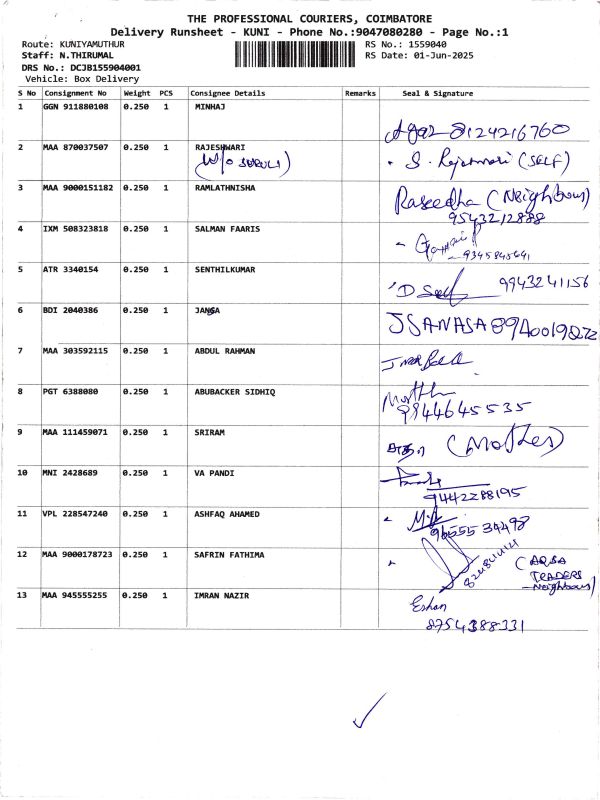 THE PROFESSIONAL COURIERS, COIMBATORE
Delivery Runsheet - KUNI - Phone No.:9047080280 - Page No.:1
Route: KUNIYAMUTHUR RS No.: 1559040
Staff: N.THIRUMAL RS Date: 01-Jun-2025
DRS No.: DCJB155904001
Vehicle: Box Delivery
S No Consignment No Weight PCS Consignee Details Remarks Seal & Signature
1 GGN 911880108 0.250 1 MINHAJ
8124216760
2 MAA 870037507 0.250 1 RAJESHWARI
(W/o SURULI) S. Rajeswari (SELF)
3 MAA 9000151182 0.250 1 RAMLATHNISHA Raseedha (Neighbour)
9543212888
4 IXM 508323818 0.250 1 SALMAN FAARIS
9345845641
5 ATR 3340154 0.250 1 SENTHILKUMAR 9943241156
6 BDI 2040386 0.250 1 JANSA
7 MAA 303592115 0.250 1 ABDUL RAHMAN
8 PGT 6388080 0.250 1 ABUBACKER SIDHIQ
9844645535
9 MAA 111459071 0.250 1 SRIRAM (Mother)
10 MNI 2428689 0.250 1 VA PANDI
9442288195
11 VPL 228547240 0.250 1 ASHFAQ AHAMED
9655534498
12 MAA 9000178723 0.250 1 SAFRIN FATHIMA (ARSA
TRADERS
Neighbour)
13 MAA 945555255 0.250 1 IMRAN NAZIR Eshan
8754388331